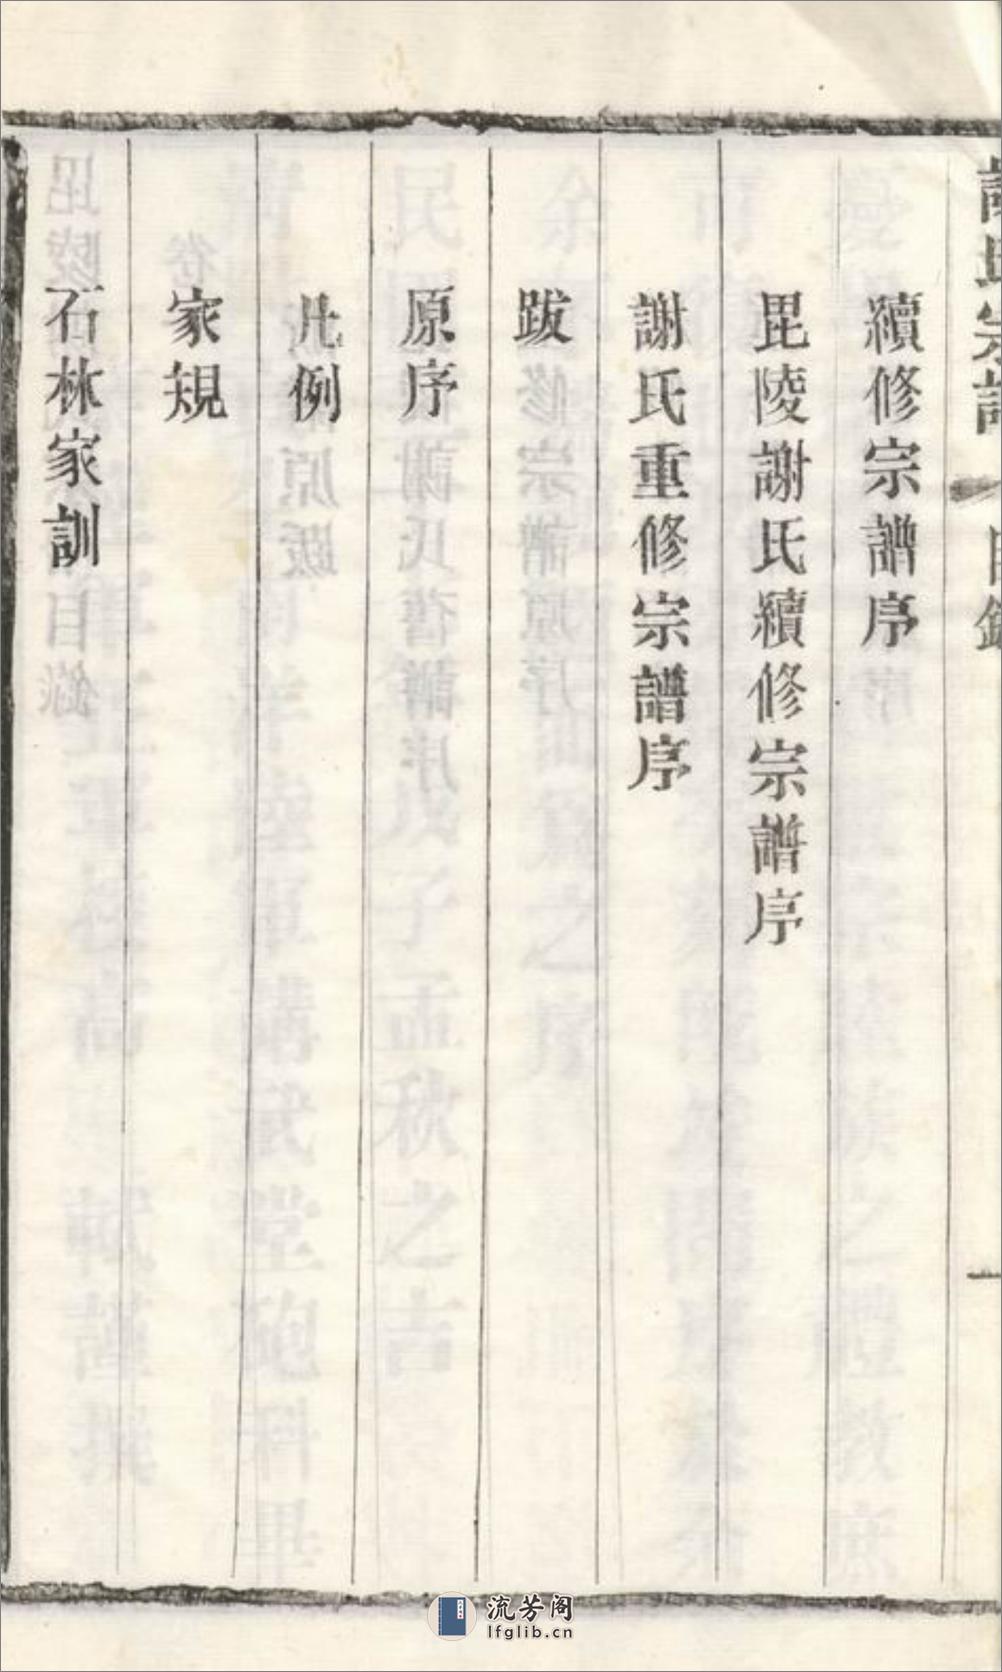 續修宗譜序
毘陵謝氏續修宗譜序
謝氏重修宗譜序
跋
原序
凡例
家規
石林家訓
流芳阁
lfglib.cn